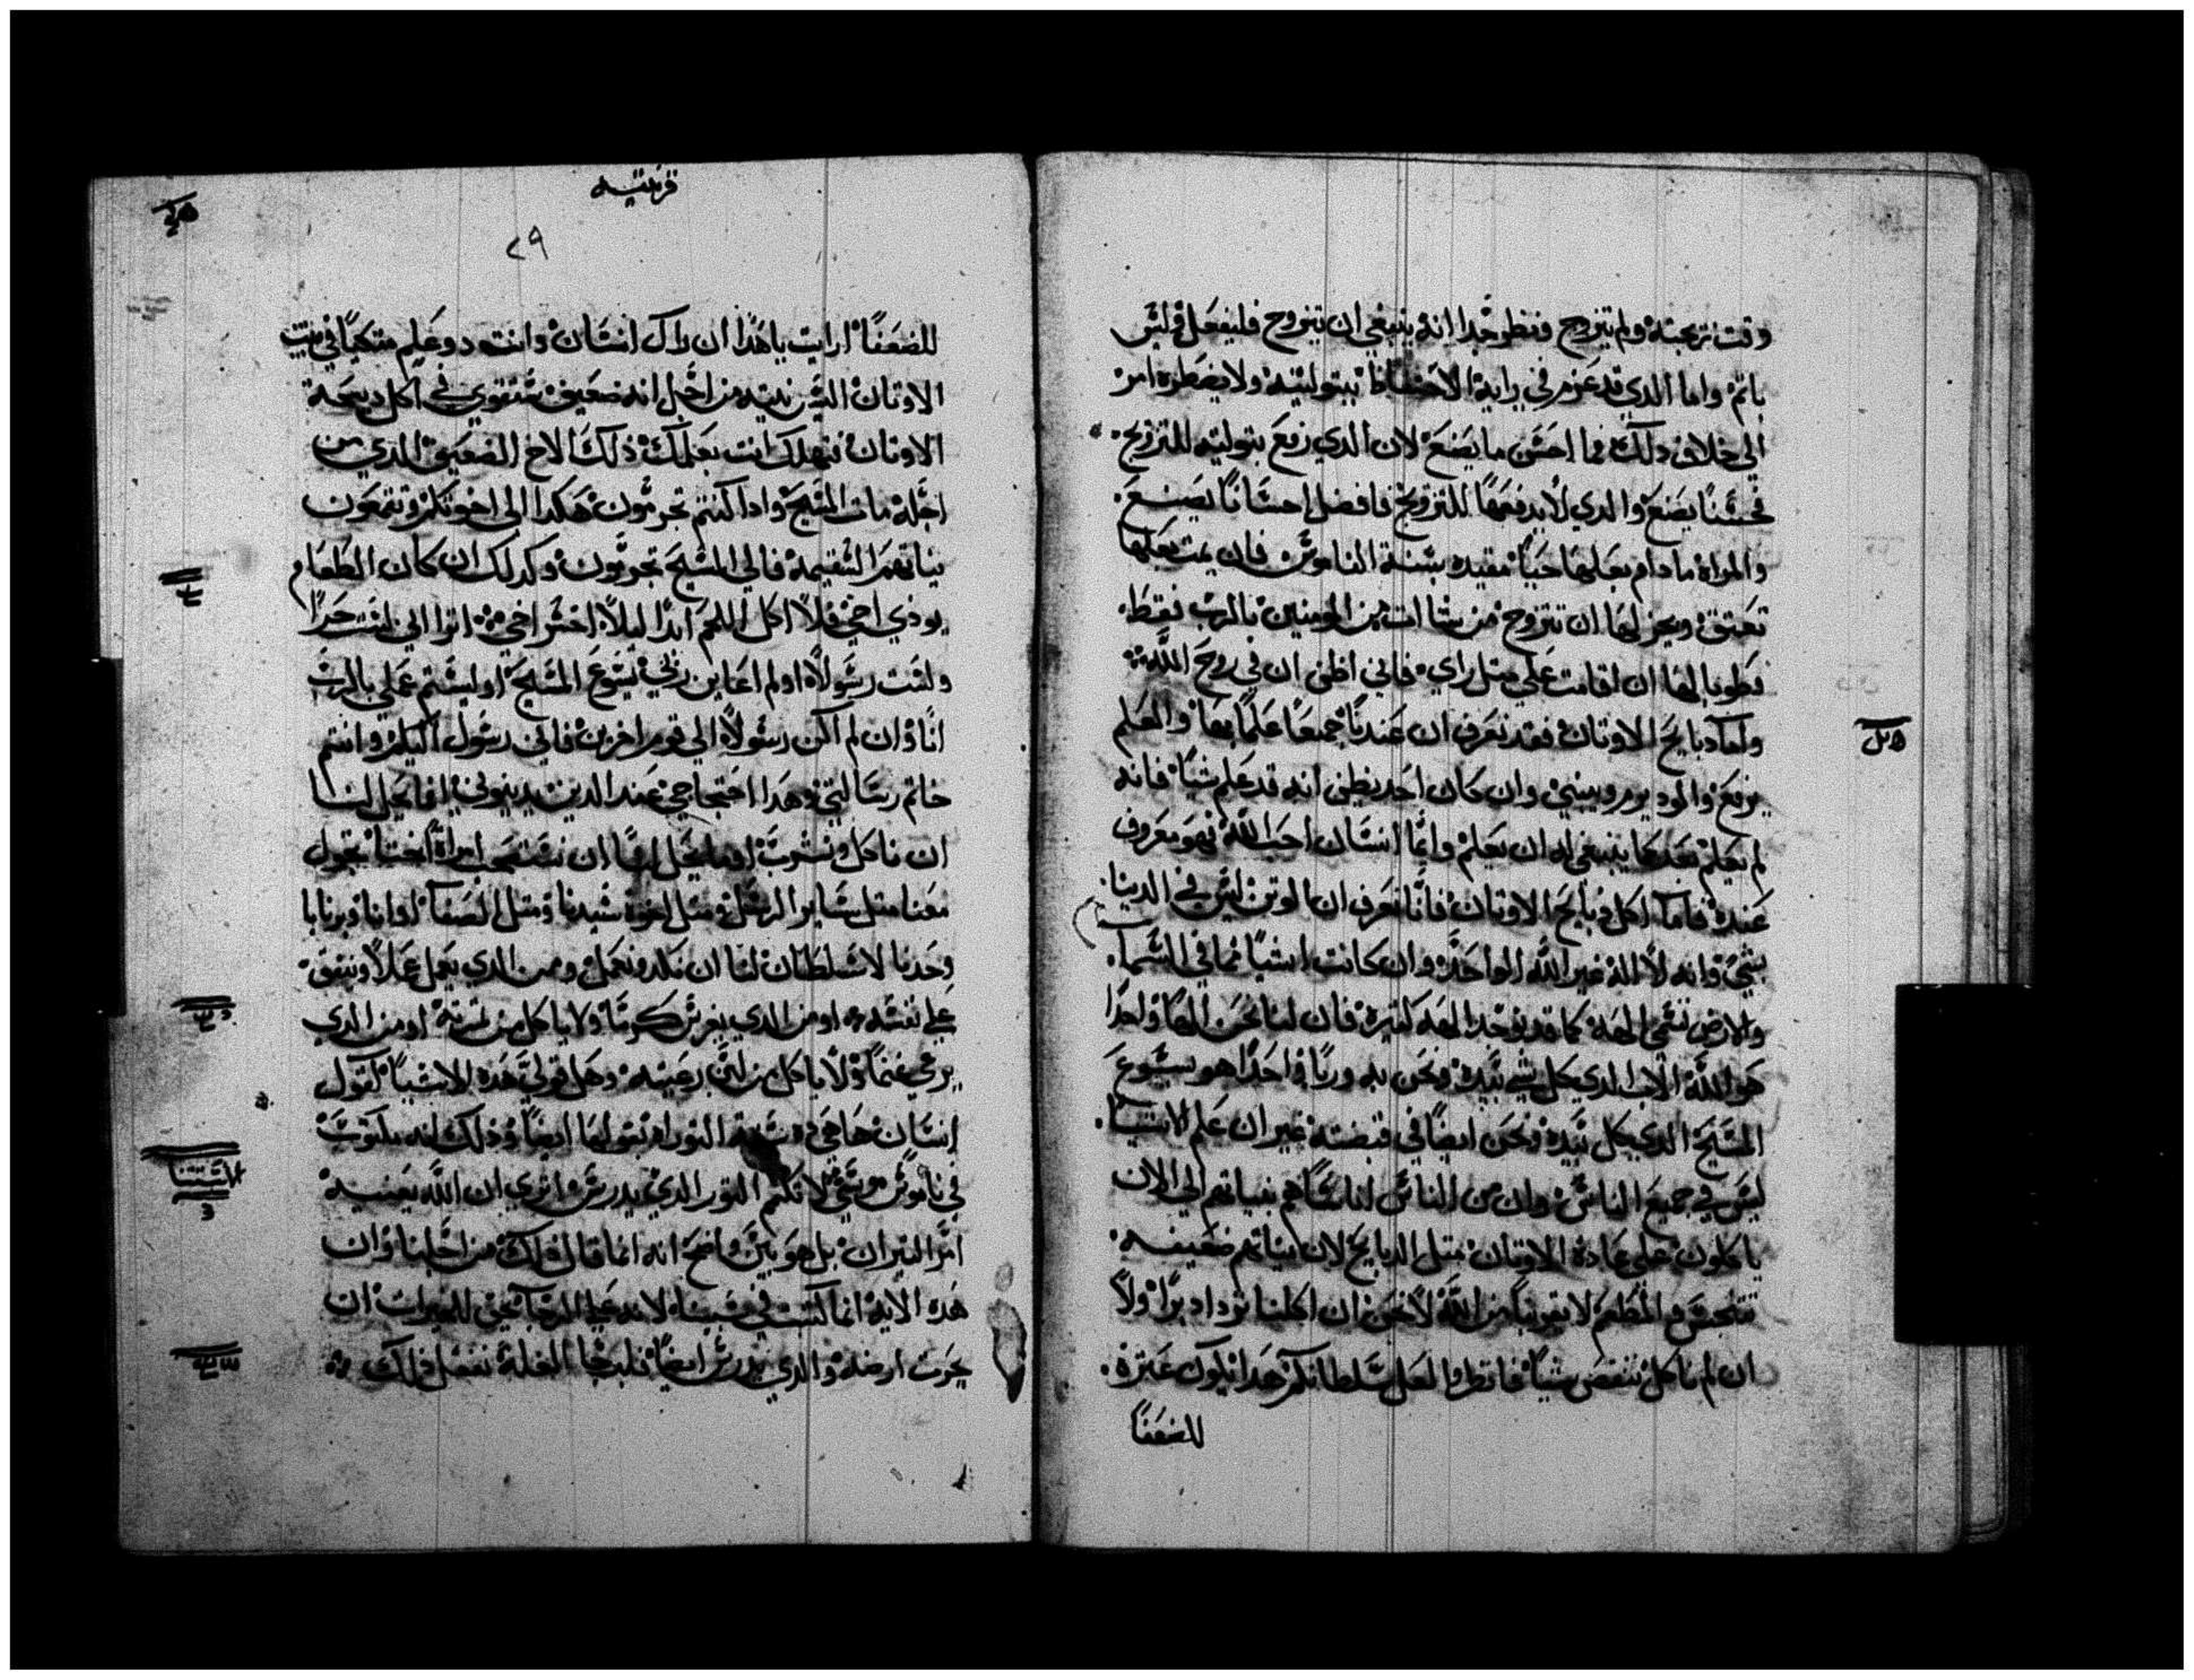 وقت تزيجته ولم يتزوج فنظر جدا انه ينبغي ان يتزوج فليفعل فليس
ياتم واما الدي قد عزم في رايه الاحتفاظ ببتوليته ولا يضطره امر
الي خلاف دلك فما احسن ما يصنع لان الدي زفع بتوليته للتزويج
فحسنا يصنع والدي لا يدفعها للتزويج فافضل احسانا يصنع
والمراه ما دام بعلها حيا مقيده بسنة الناموس فان يمت بعلها
تعتق ويجز لها ان تتزوج من شات من المومنين بالرب فقط
فطوبا لها ان اقامت علي مثل راي فاني اظن ان في روح الله
واما دبايح الاوتان فقد نعرف ان عندنا جميعا علما بها والعلم
يرفع والود يرم ويبني وان كان احد يظن انه قد علم شيا فانه
لم يعلم بعد كما ينبغي له ان يعلم وايما انسان احب الله فهو معروف
عنده فاما اكل دبايح الاوتان فانا نعرف ان الوتن ليس في الدنيا
بشي وانه لا اله غير الله الواحد وان كانت اشيا مما في السما
والارض تسمي الهه كما قد توجد الهه كتيره فان لنا نحن الها واحدا
هو الله الاب الدي كل شي بيده ونحن به وربا واحدا هو يسوع
المسيح الدي كل بيده ونحن ايضا في قبضته غير ان علم الاشيا
ليس في جميع الناس وان من الناس اناسا هم بنياتهم الي الان
ياكلون علي عادة الاوتان متل الدبايح لان نياتهم ضعيفه
تتنجس والمطعم لا يقربنا من الله لا نحن ان اكلنا نزداد برا ولا
ان لم ناكل ننقص شيا فانظروا لعل سلطانكم هدا يكون عترة
للضعفا
قرنتيه
٢٩
للضعفا ارايت يا هدا ان راك انسان وانت دو علم متكيا في بيت
الاوتان اليس نيته من اجل انه ضعيف تتقوي في اكل دبيحة
الاوتان فيهلك انت بعلمك ذلك الاخ الضعيف الدي من
اجله مات المسيح وادا كنتم تجرمون هكدا الي اخوتكم وتقمعون
نياتهم السقيمة فالي المسيح تجرمون وكدلك ان كان الطعام
يودي اخي فلا اكل اللحم ابدا ليلا اخسر اخي اترا اني لست حرا
ولست رسولا اولم اعاين ربي يسوع المسيح اوليستم عملي بالرب
انا وان لم اكن رسولا الي قوم اخرين فاني رسول اليكم وانتم
خاتم رسالتي وهدا احتجاجي عند الدين يدينوني اما يحل لنا
ان ناكل ونشرب او ما يحل لنا ان نستصحب امراة اختا تجول
معنا متل ساير الرسل ومتل اخوة سيدنا ومتل الصفا او انا وبرنابا
وحدنا لا سلطان لنا ان نكد ونعمل ومن الدي يعمل عملا وينفق
علي نفسه او من الدي يغرس كرما ولا ياكل من تمرته او من الدي
يرعي غنما ولا ياكل من لبن رعيته وهل قولي هده الاشيا كقول
انسان ها هي ده سنة التوراه تقولها ايضا وذلك انه مكتوب
في ناموس موسي لا تكم التور الدي يدرس اتري ان الله يعنيه
امر التيران بل هو بين واضح انه انما قال ذلك من اجلنا وان
هده الايه انما كتبت في سببنا لانه علي الرجا يحق للحرات ان
يحرت ارضه والدي يدرس ايضا فلرجا الغلة نفعل ذلك
الاستتنا